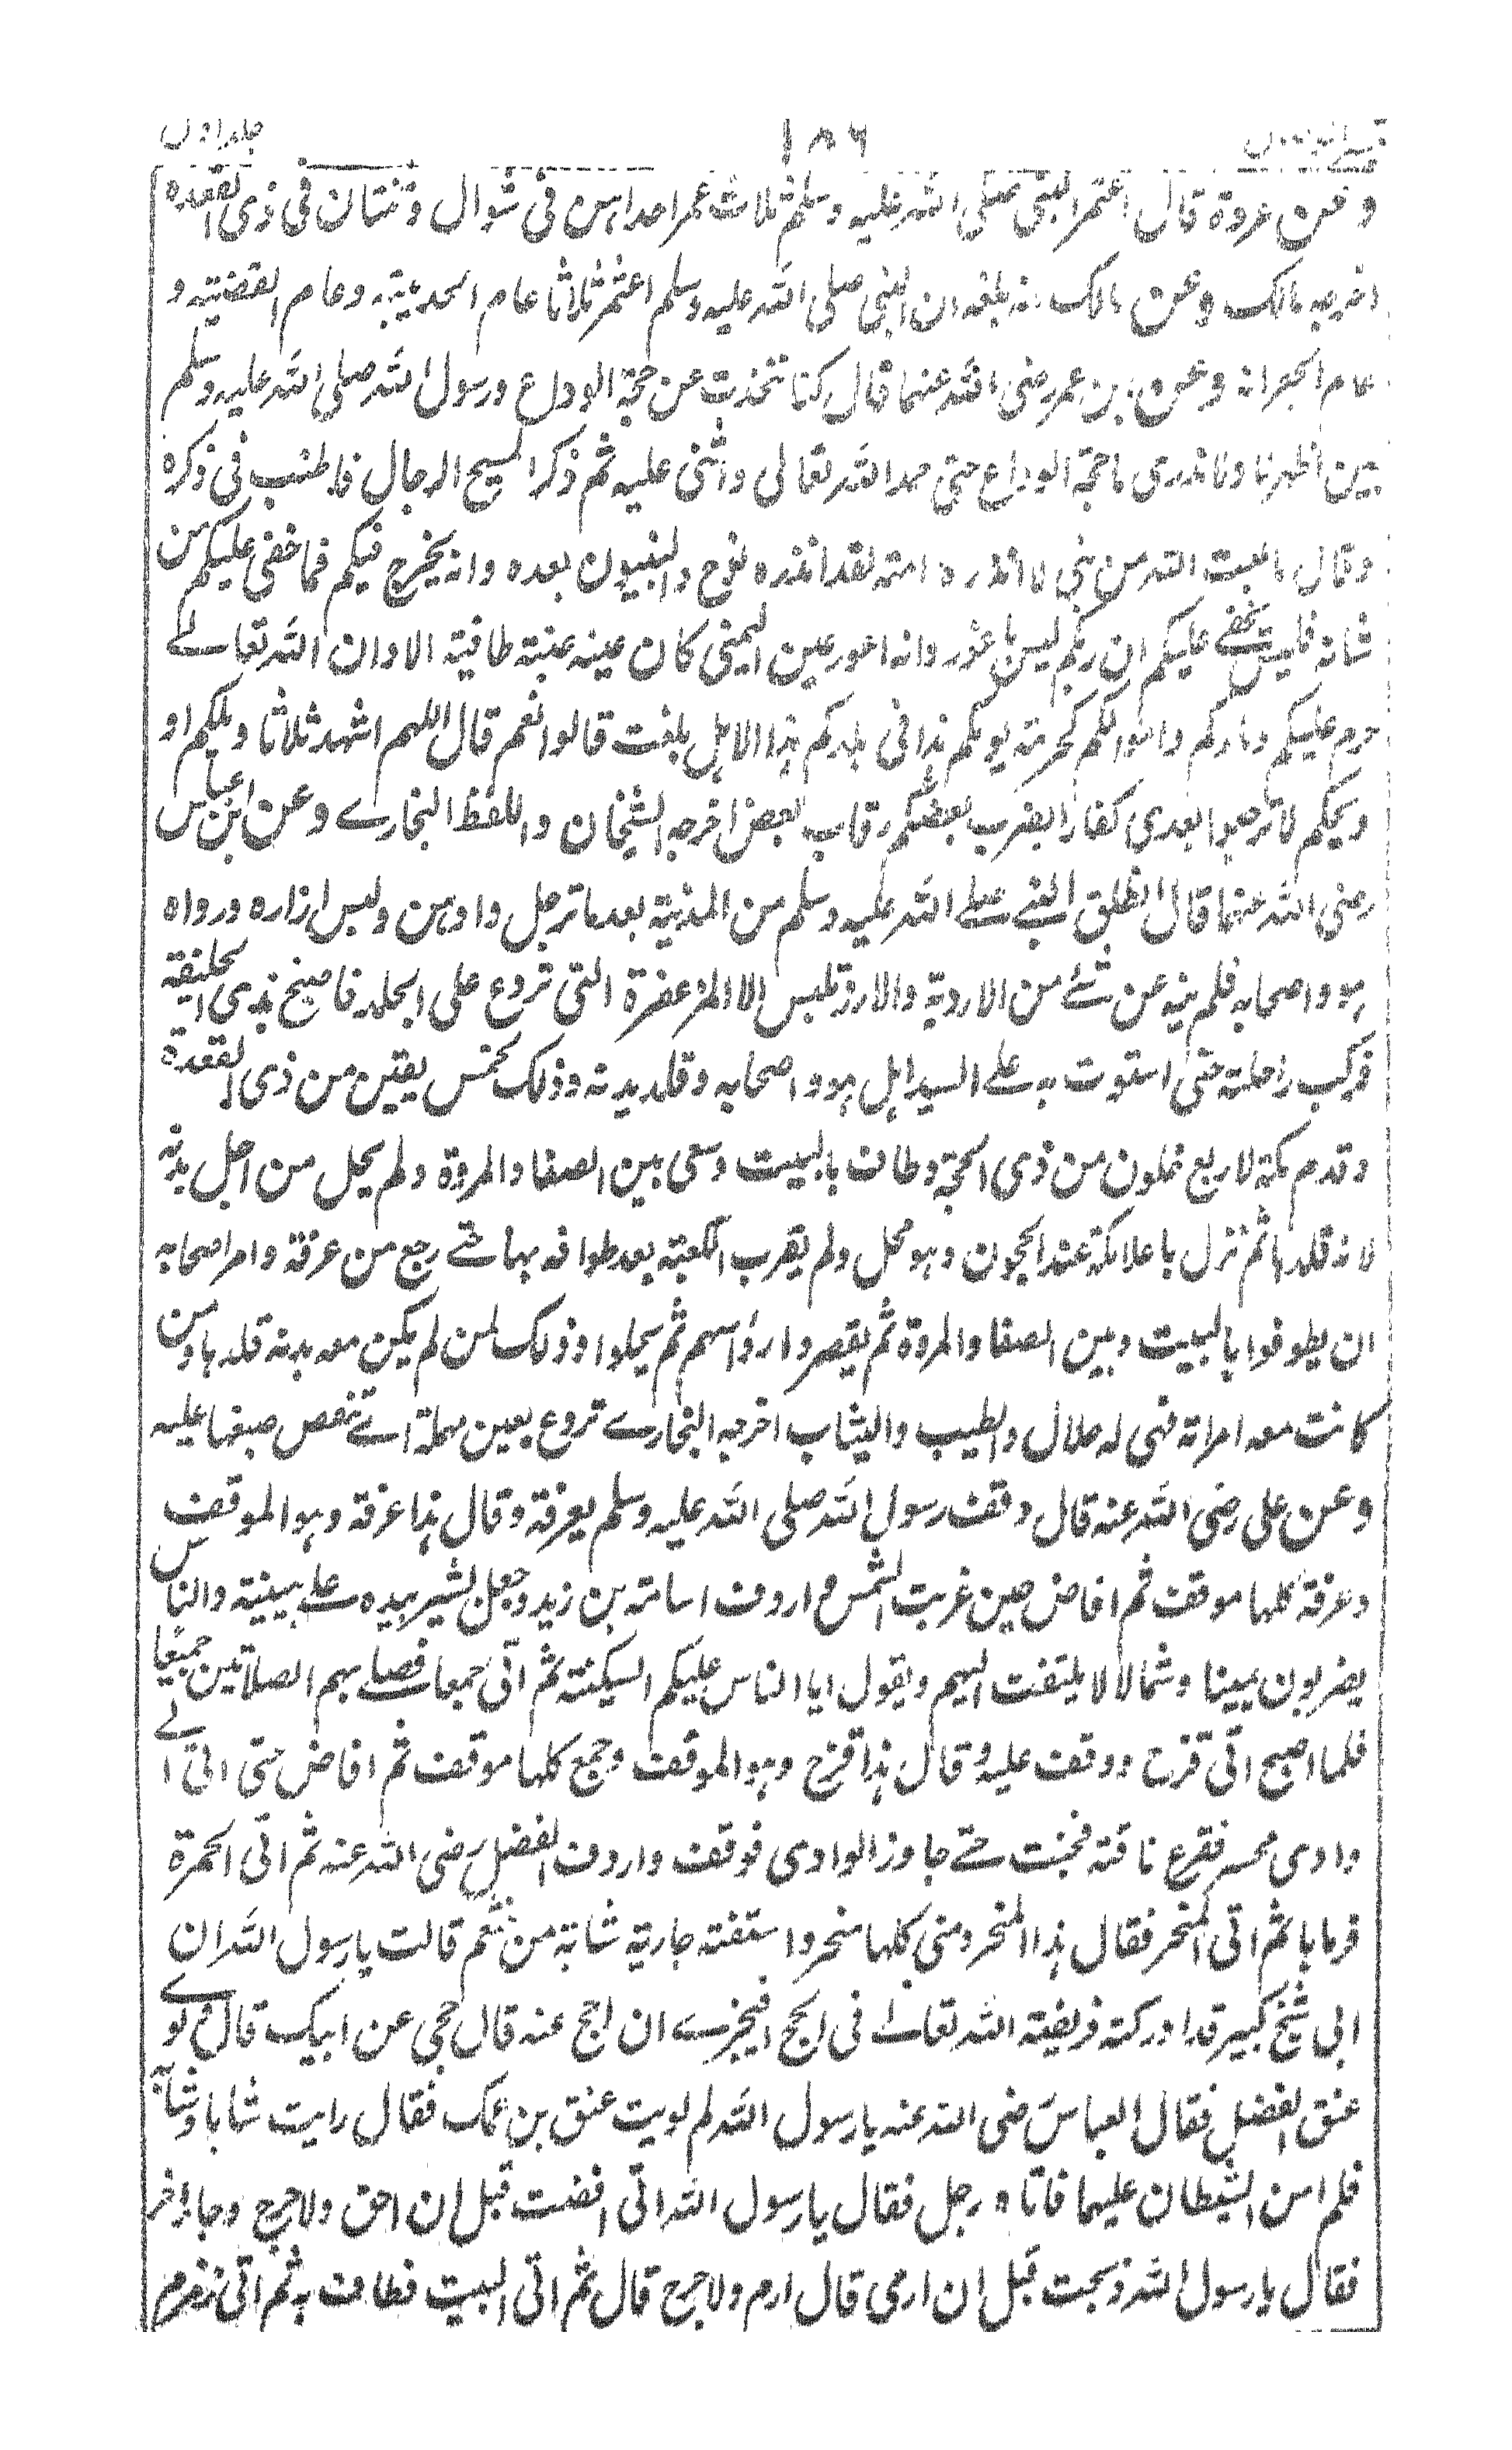 جلد اول
١٨٦
وعن عروة قال اعتمر النبی صلی الله علیه وسلم ثلاث عمر احداہن فی شوال وثنتان فی ذی القعدہ
اخرجه مالک وعن مالک انه بلغه ان النبی صلی الله علیه وسلم اعتمر ثلاثا عام الحدیبیة وعام القضیة و
عام الجعرانة وعن ابن عمر رضی الله عنهما قال کنا نتحدث عن حجة الوداع ورسول الله صلی الله علیه وسلم
بین اظهرنا ولا ندری ما حجة الوداع حتی حمد الله تعالی واثنی علیه ثم ذکر المسیح الدجال فاطنب فی ذکره
وقال ما بعث الله من نبی الا انذره امته لقد انذره نوح والنبیون بعده وانه یخرج فیکم فما خفی علیکم من
شانه فلیس یخفے علیکم ان ربکم لیس باعور وانه اعور عین الیمنی کان عینه عنبة طافیة الا وان الله تعالے
حرم علیکم دماءکم واموالکم کحرمة یومکم ہذا فی بلدکم ہذا الا ہل بلغت قالوا نعم قال اللهم اشهد ثلاثا ویلکم او
ویحکم لا ترجعوا بعدی کفارا یضرب بعضکم رقاب بعض اخرجه الشیخان واللفظ للبخارے وعن ابن عباس
رضی الله عنهما قال انطلق النبے صلے الله علیه وسلم من المدینة بعد ما ترجل وادہن ولبس ازاره ورداه
ہو واصحابه فلم ینه عن شئ من الاردیة والازر تلبس الا المزعفرة التی تروع علی الجلد فاصبح بذی الحلیفة
فرکب راحلته حتی استوت به علے البیداء اہل ہو واصحابه وقلد بدنه وذلک لخمس بقین من ذی القعدة
وقدم مکة لاربع خلون من ذی الحجة وطاف بالبیت وسعی بین الصفا والمروة ولم یحل من اجل بدنه
لانه قلدہا ثم نزل باعلا مکة عند الحجون وہو محل ولم یقرب الکعبة بعد طوافه بها حتے رجع من عرفة وامر اصحابه
ان یطوفوا بالبیت وبین الصفا والمروة ثم یقصروا رؤسهم ثم یحلوا وذلک لمن لم یکن معه بدنة قلدہا ومن
کانت معه امراته فہی له حلال والطیب والثیاب اخرجه البخارے تروع بعین مهملة اے تنفض صبغها علیه
وعن علی رضی الله عنه قال وقف رسول الله صلی الله علیه وسلم بعرفة وقال ہذا عرفة وہو الموقف
وعرفة کلها موقف ثم افاض حین غربت الشمس واردف اسامة بن زید وجعل یشیر بیده علے ہینیة والناس
یضربون یمینا وشمالا لا یلتفت الیهم ویقول ایا الناس علیکم السکینة ثم اتی جمعا فصلے بهم الصلاتین جمیعا
فلما اصبح اتی قزح ووقف علیه وقال ہذا قزح وہو الموقف وجمع کلها موقف ثم افاض حتی اتی الے
وادی محسر فقرع ناقته فخبت حتے جاوز الوادی فوقف واردف الفضل رضی الله عنه ثم اتی الجمرة
فرماہا ثم اتی المنحر فقال ہذا المنحر ومنی کلها منحر واستفتته جاریة شابة من خثعم قالت یا رسول الله ان
ابی شیخ کبیر قد ادرکته فریضة الله تعالے فی الحج افیجزے ان احج عنه قال حجی عن ابیک قال ولوے
عنق الفضل فقال العباس رضی الله عنه یا رسول الله لم لویت عنق بن عمک فقال رایت شابا وشابة
فلم امن الشیطان علیهما فاتاه رجل فقال یا رسول الله انی افضت قبل ان احلق ولا حرج وجاء اخر
فقال یا رسول الله ذبحت قبل ان ارمی قال ارم ولا حرج قال ثم اتی البیت فطاف به ثم اتی زمزم